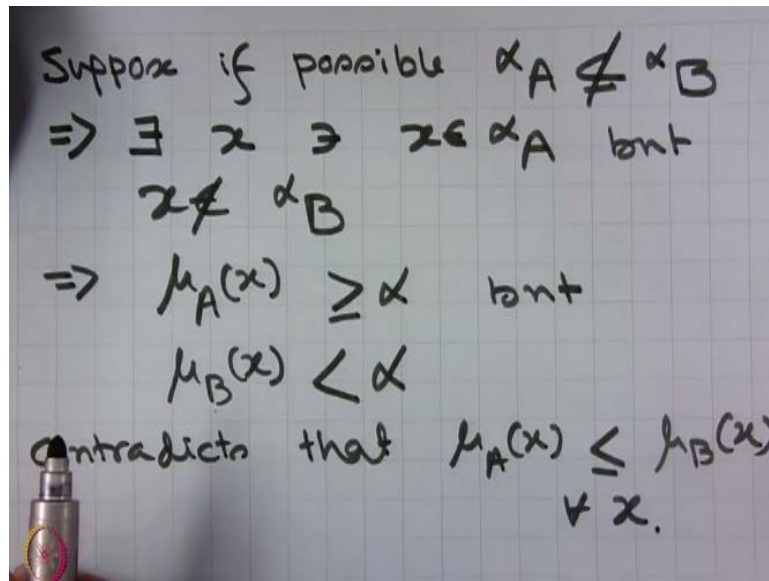 Suppose if possible ᵅA ⊈ ᵅB
=> ∃ x ∋ x ∈ ᵅA but
x ∉ ᵅB
=> μ_A(x) ≥ α but
μ_B(x) < α
contradicts that μ_A(x) ≤ μ_B(x)
∀ x.